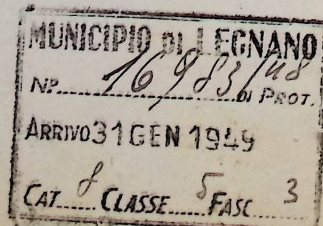 MUNICIPIO DI LEGNANO
NO. 16983/48 DI PROT.
ARRIVO 31 GEN 1949
CAT. 8 CLASSE 5 FASC 3